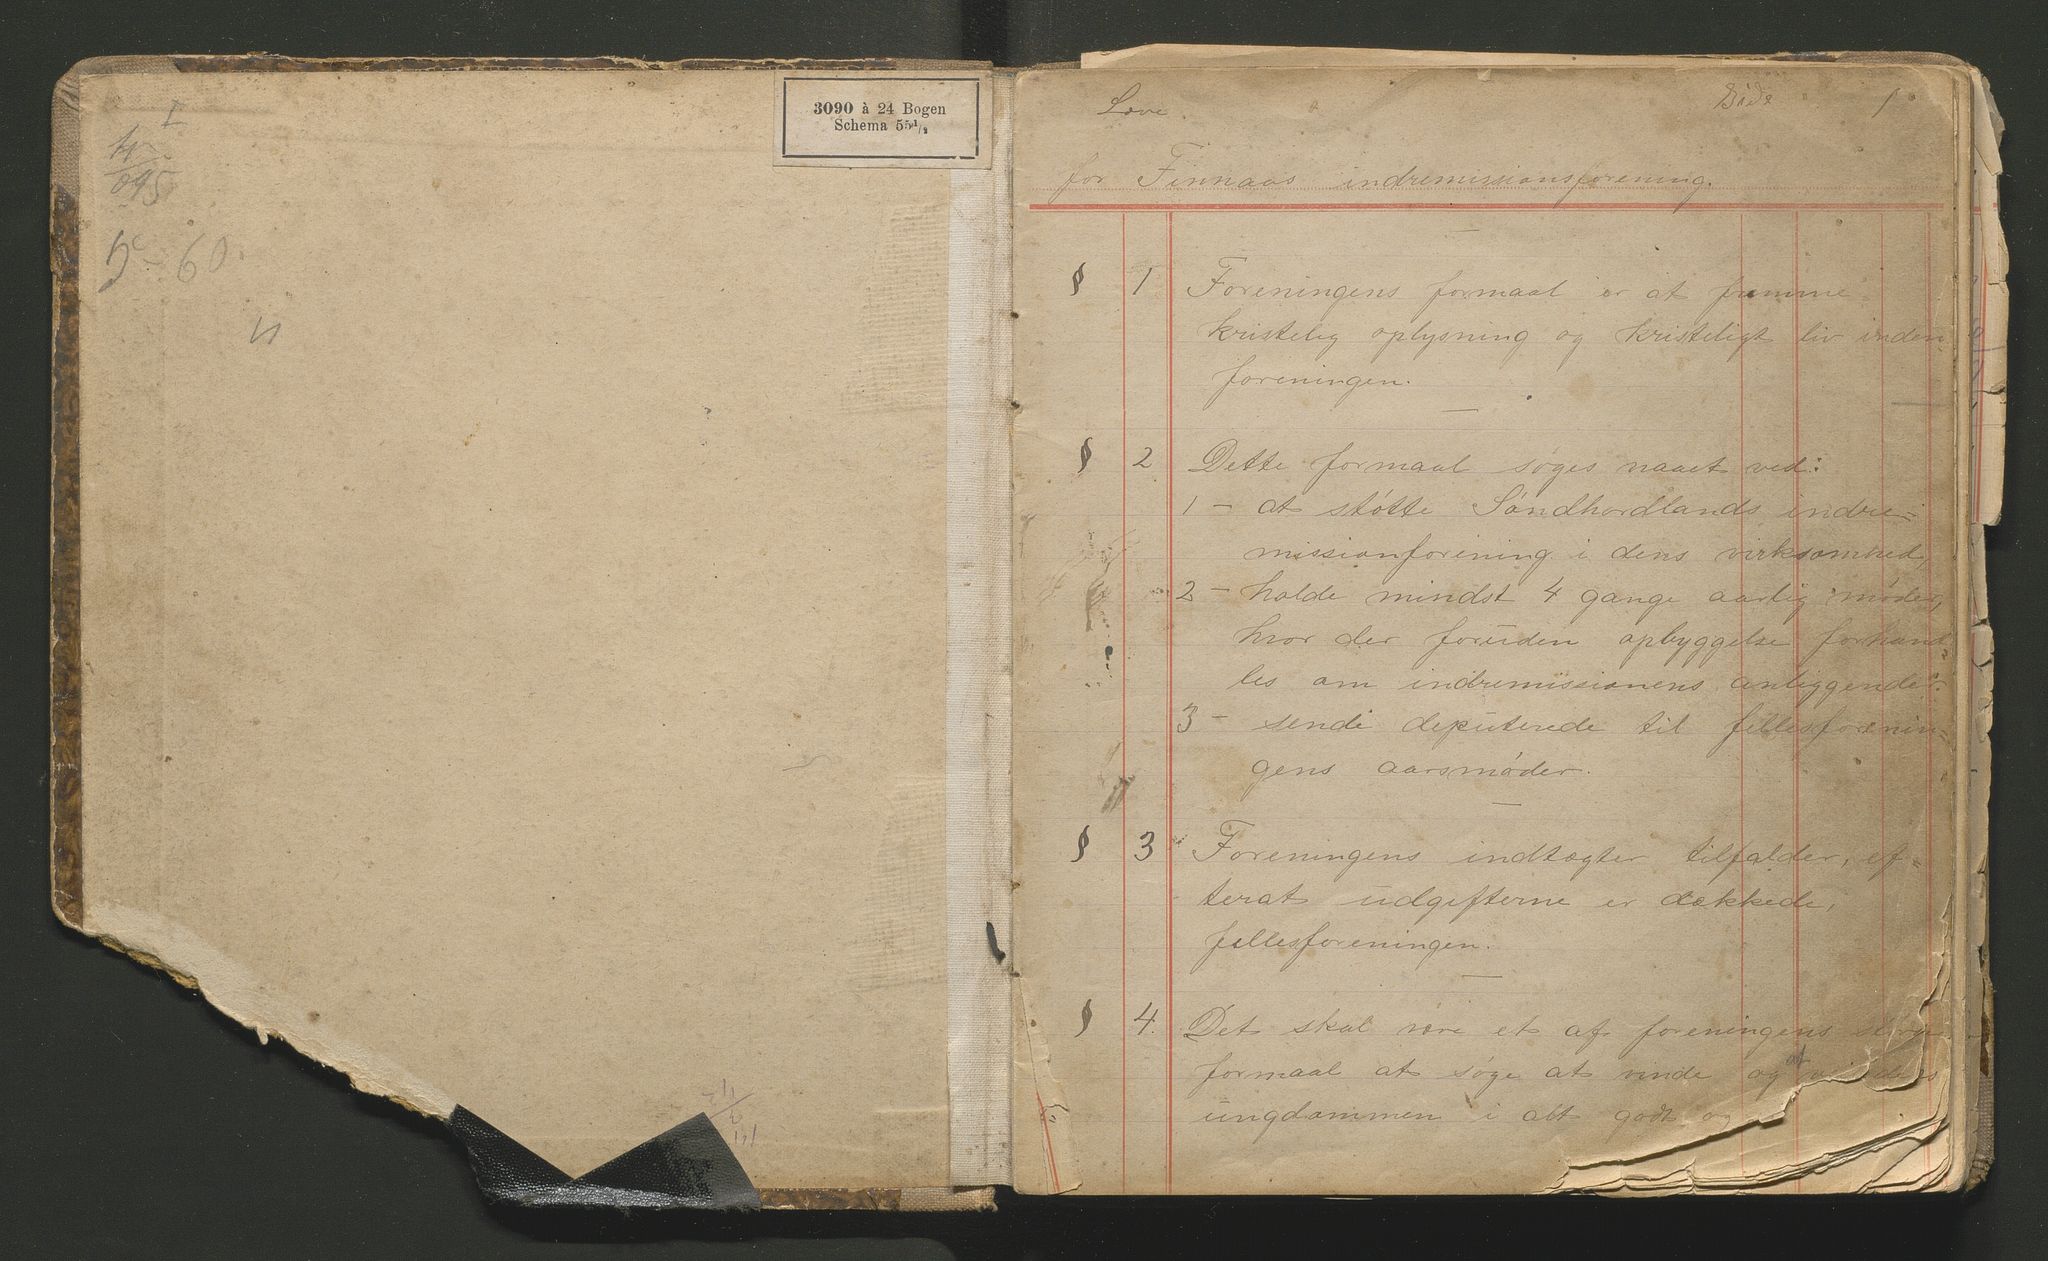 I
5 - 60.
3090 à 24 Bogen
Schema 55 1/2
Love Side 1
for Finnaas indremissionsforening.
§ 1 Foreningens formaal er at fremme
kristelig oplysning og kristeligt liv inden
foreningen.
§ 2 Dette formaal søges naaet ved:
1 - at støtte Søndhordlands indre-
missionforening i dens virksomhed,
2 - holde mindst 4 gange aarlig møder,
hvor der foruden opbyggelse forhand-
les om indremissionens anliggender.
3 - sende deputerede til fellesforenin-
gens aarsmøder.
§ 3 Foreningens indtægter tilfalder, ef-
terat udgifterne er dækkede,
fellesforeningen.
§ 4. Det skal være et af foreningens
formaal at søge at vinde og at
ungdommen i alt godt og